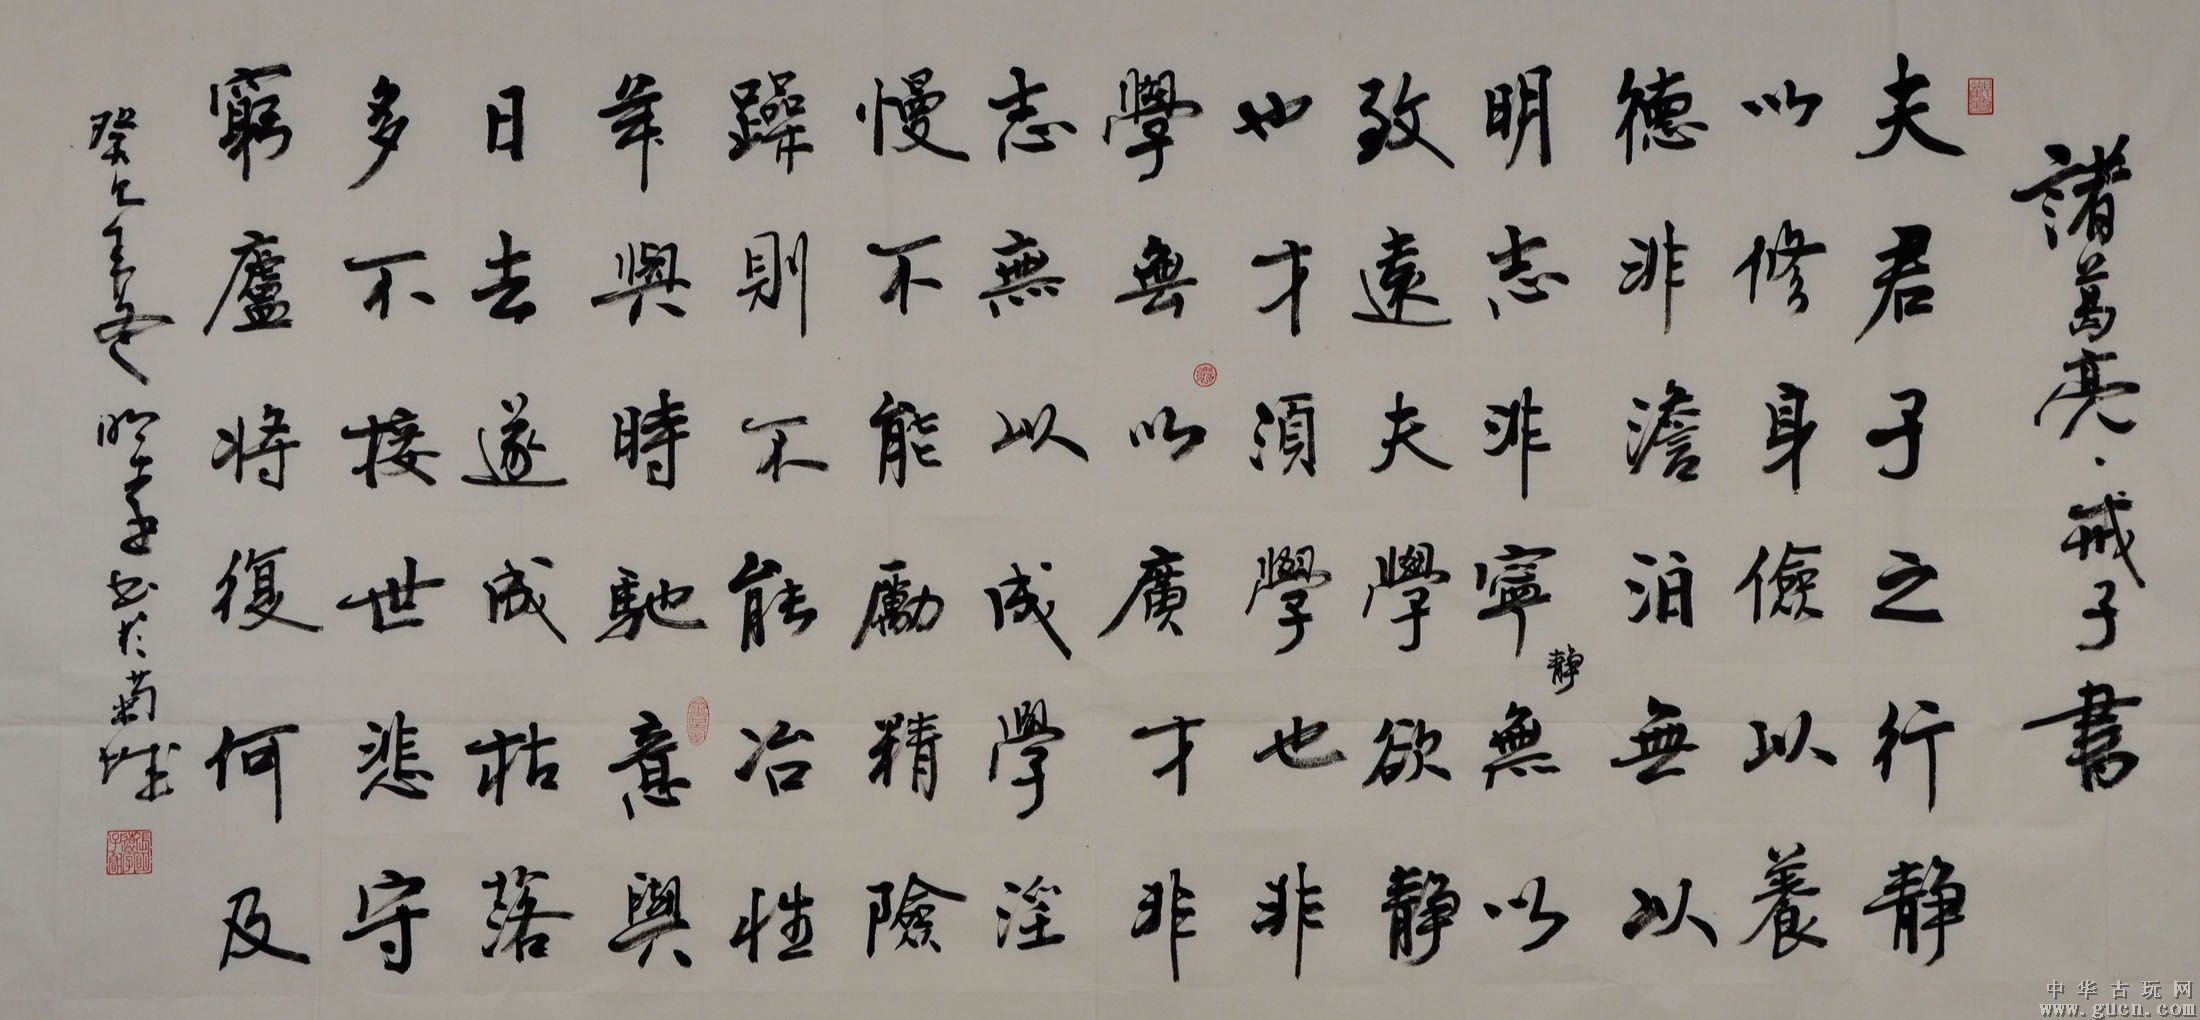 諸葛亮·戒子書
夫君子之行静
以修身儉以養
德非澹泊無以
明志非寧静無以
致遠夫學欲静
也才須學也非
學無以廣才非
志無以成學淫
慢不能勵精險
躁則不能冶性
年與時馳意與
日去遂成枯落
多不接世悲守
窮廬將復何及
癸巳
書於菊城
中华古玩网
www.gucn.com